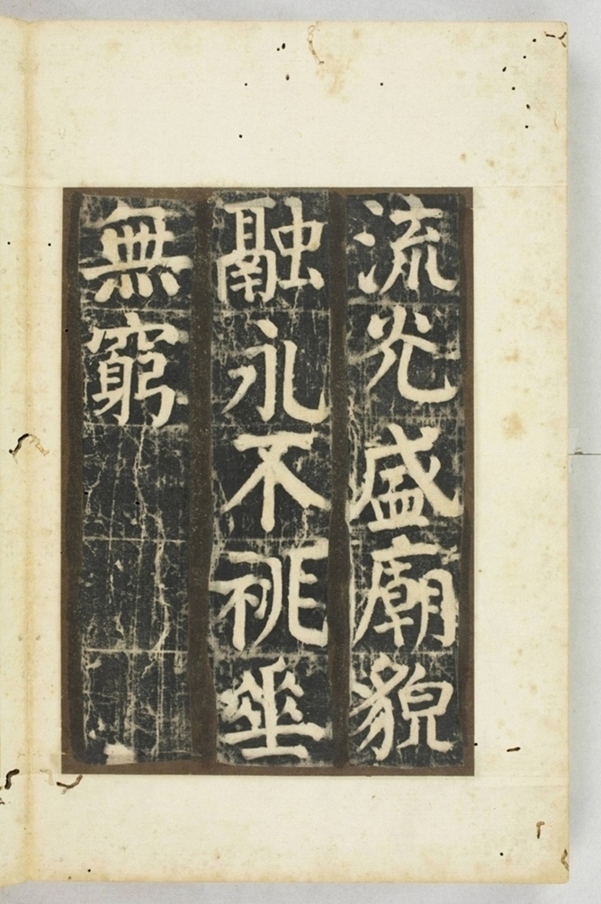 流光盛廟貌
融永不祧垂
無窮